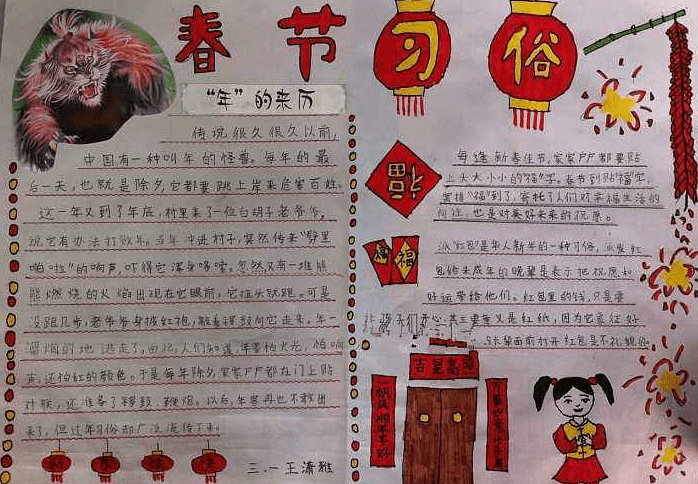 春节习俗
“年”的来历
传说很久很久以前,
中国有一种叫年的怪兽。每年的最
后一天,也就是除夕,它都要跳上岸来危害百姓。
这一年又到了年底,村里来了一位白胡子老爷爷,
说它有办法打败年。当年冲进村子,突然传来“劈里
啪啦”的响声,吓得它浑身哆嗦。忽然,又有一堆熊
熊燃烧的火焰出现在它眼前,它扭头就跑。可是
没跑几步,老爷爷身披红袍,敲着锣鼓向它走来。年一
溜烟的地逃走了,由此,人们知道,年害怕火光,怕响
声,还怕红的颜色。于是每年除夕,家家户户都在门上贴
对联,还准备了锣鼓、鞭炮。以后,年害再也不敢出
来了,但过年习俗却广泛流传下来。
三.一 王潇雅
福
每逢新春佳节,家家户户都要贴
上大大小小的“福”字。春节到贴福字,
寄托了人们对幸福生活的
向往,也是对美好未来的祝愿。
福 福
派“红包”是华人新年的一种习俗,派发红
包给未成年的晚辈是表示把祝愿和
好运带给他们。红包里的钱,只是要
孩子们开心,其主要意义是红纸,因为它象征好
长辈面前打开红包是不礼貌的
吉星高照
一帆风顺年年好
万事如意步步高